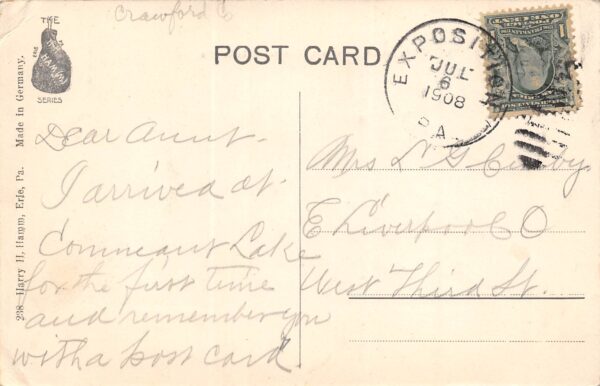 Crawford Co
THE
HAMM
SERIES
POST CARD
EXPOSITION
JUL
6
1908
PA.
1
238 Harry H. Hamm, Erie, Pa. Made in Germany.
Dear Aunt-
I arrived at
Conneaut Lake
for the first time
and remember you
with a post card.
Mrs L G
E Liverpool O
West Third St.